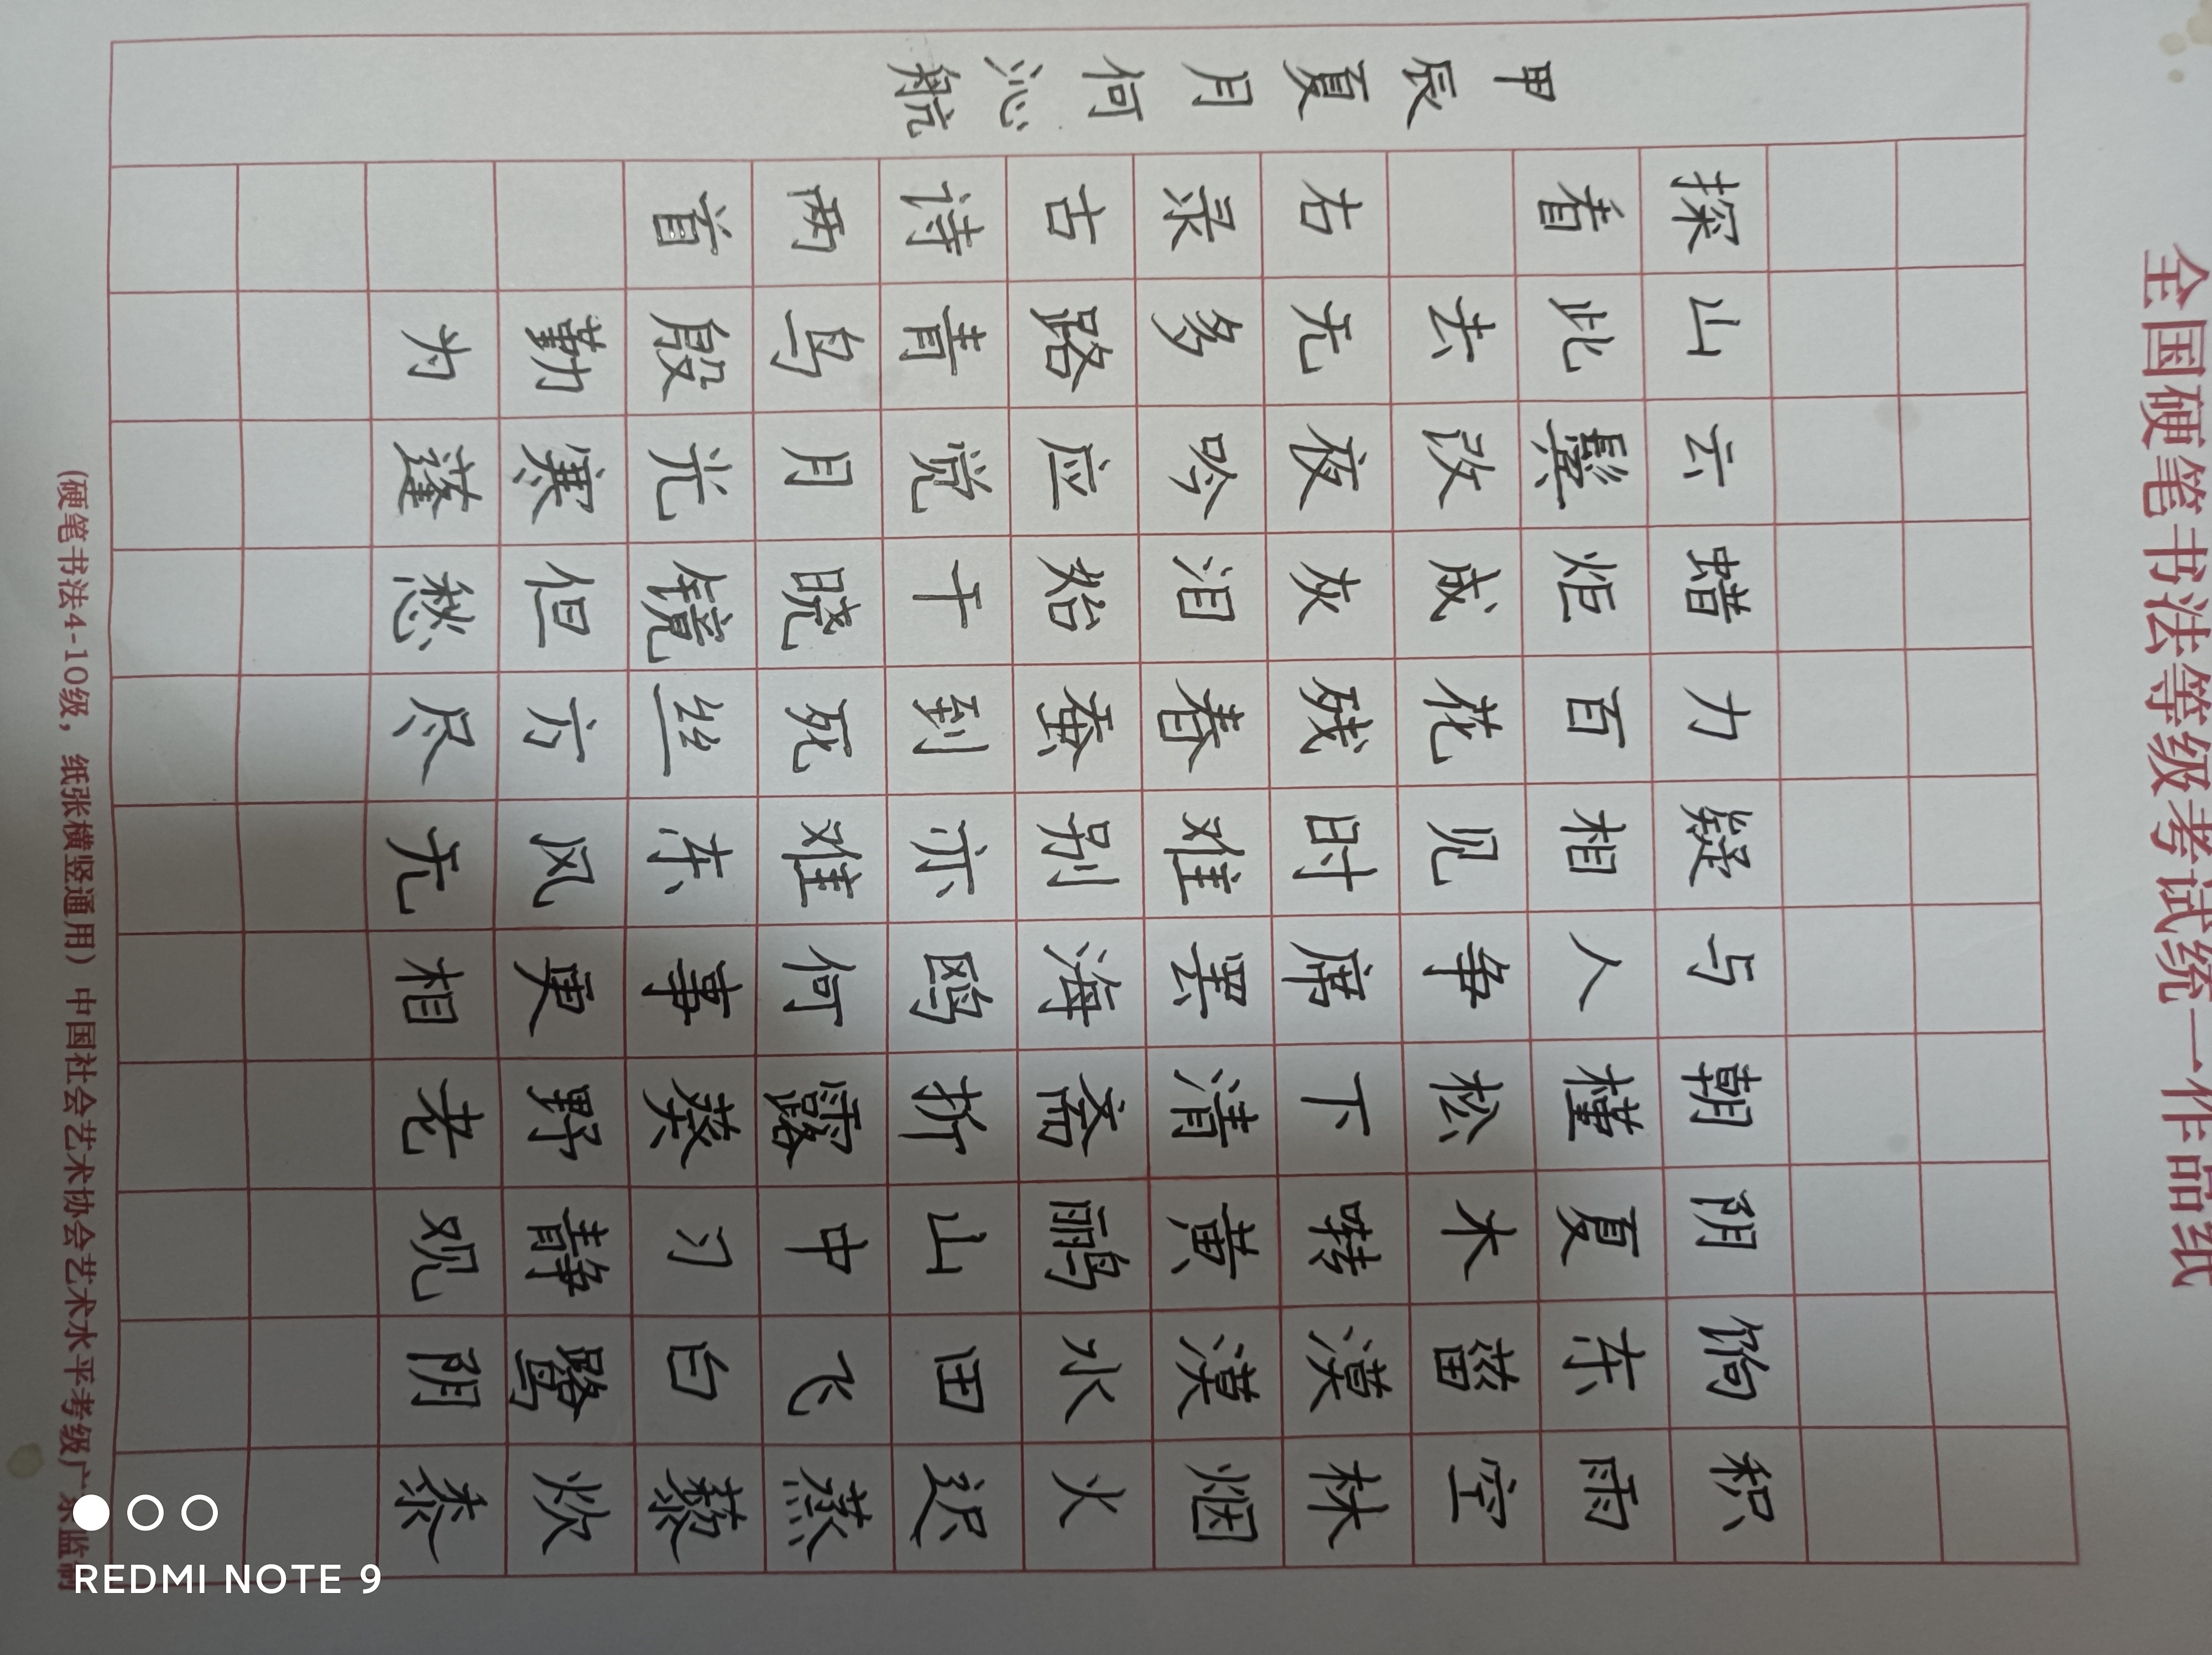 全国硬笔书法等级考试统一作品纸
积雨空林烟火迟蒸藜炊黍
饷东菑漠漠水田飞白鹭阴
阴夏木啭黄鹂山中习静观
朝槿松下清斋折露葵野老
与人争席罢海鸥何事更相
疑相见时难别亦难东风无
力百花残春蚕到死丝方尽
蜡炬成灰泪始干晓镜但愁
云鬓改夜吟应觉月光寒蓬
山此去无多路青鸟殷勤为
探看 右录古诗两首
甲辰夏月何沁航
(硬笔书法4-10级，纸张横竖通用) 中国社会艺术协会艺术水平考级广东监制
REDMI NOTE 9